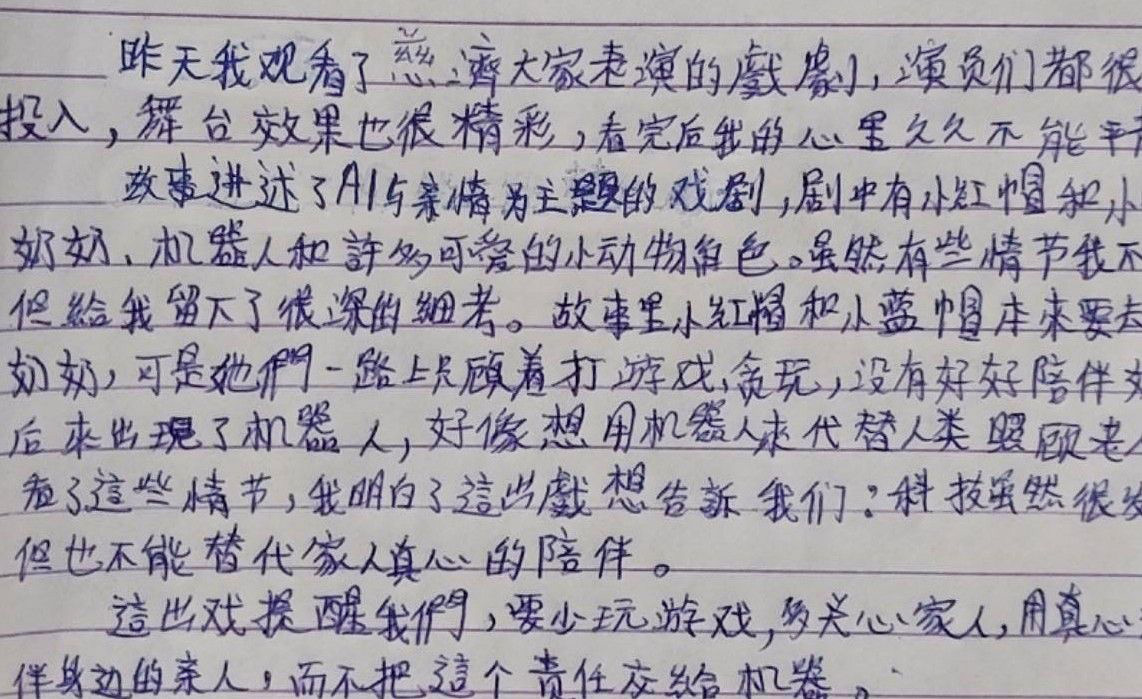 昨天我观看了慈濟大家老演的戲劇，演员们都很
投入，舞台效果也很精彩，看完后我的心里久久不能平
故事讲述了AI与亲情为主题的戏剧，剧中有小红帽和小
奶奶、机器人和許多可爱的小动物角色。虽然有些情节我不
但給我留下了很深的細考。故事里小红帽和小蓝帽本来要去
奶奶，可是她們一路上只顾着打游戏，贪玩，没有好好陪伴
后来出現了机器人，好像想用机器人来代替人类照顾老人
看了這些情节，我明白了這出戲想告訴我们：科技虽然很发
但也不能替代家人真心的陪伴。
這出戏提醒我們，要少玩游戏，多关心家人，用真心
伴身边的亲人，而不把這个责任交給机器。